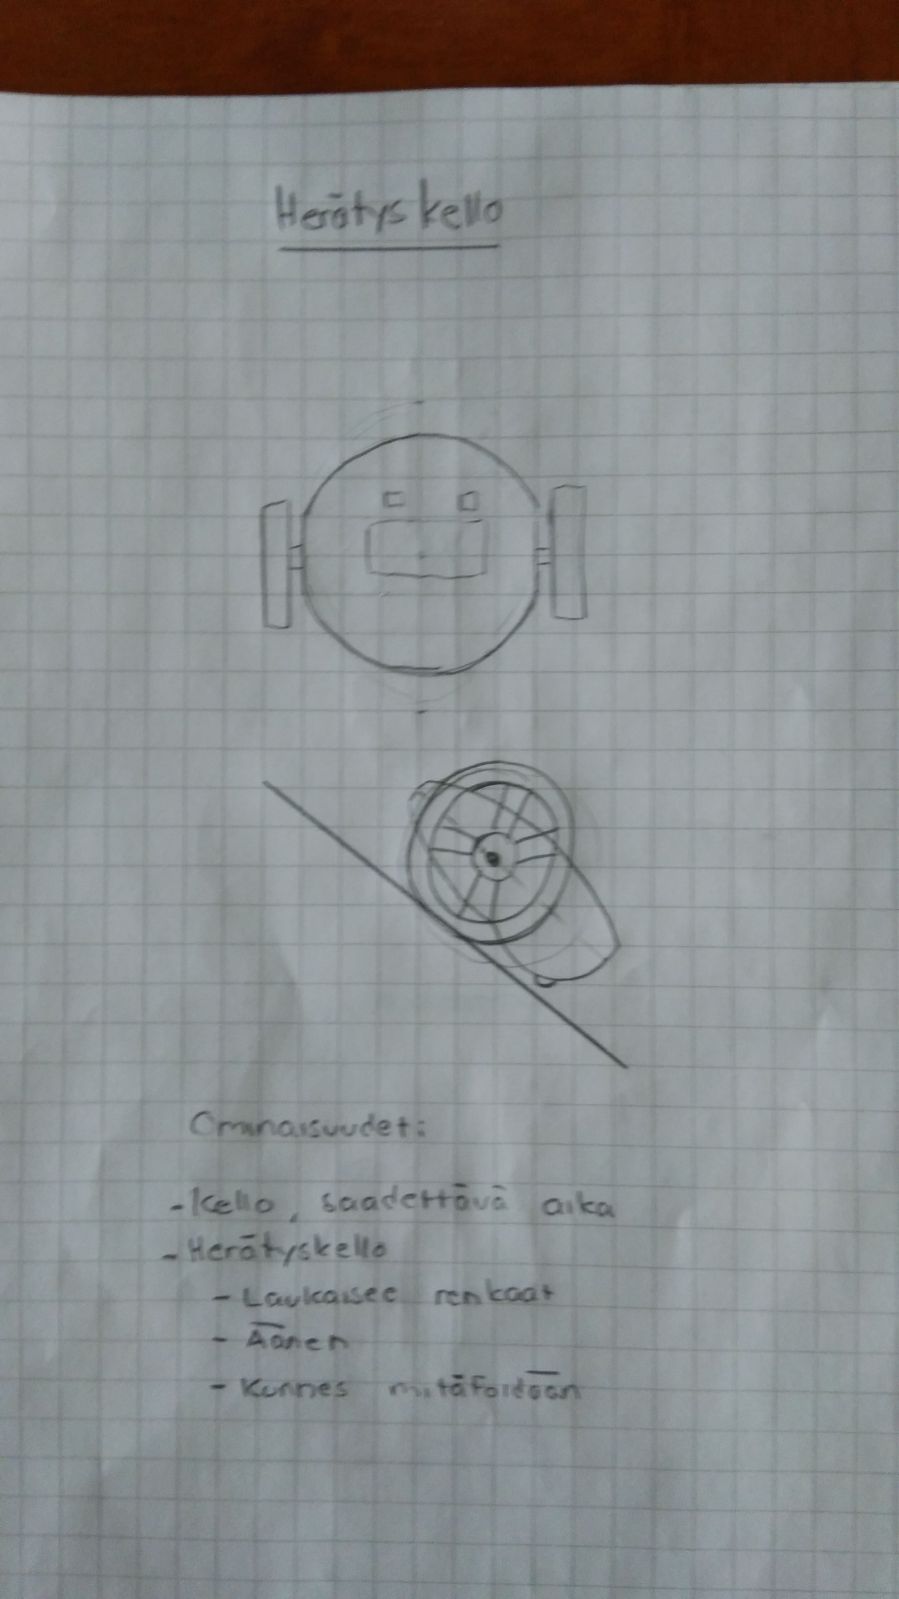 Herätyskello
Ominaisuudet:
- Kello, säädettävä aika
- Herätyskello
- Laukaisee renkaat
- Äänen
- Kunnes